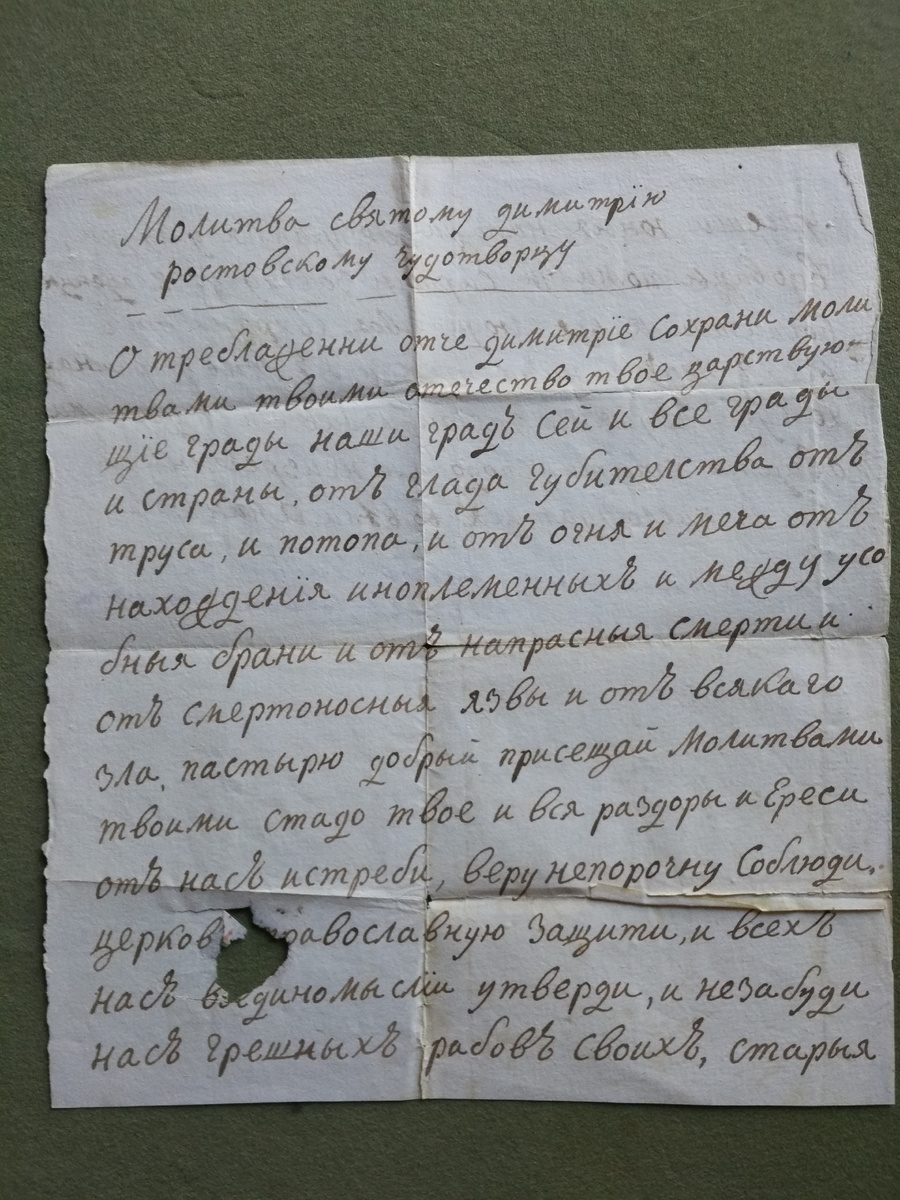 Молитва святому димитрїю
ростовскому чудотворцу
О требла женни отче димитрїе Сохрани Моли
твами твоими отечество твое царствую-
щїе грады наши градъ Сей и все грады
и страны, отъ глада губителства отъ
труса, и потопа, и отъ огня и меча отъ
нахождения иноплеменныхъ и между усо
бныя брани и отъ напрасныя смерти и
отъ смертоносныя язвы и отъ всякаго
зла, пастырю добрый присещай Молитвами
твоими стадо твое и вся раздоры и Ереси
отъ насъ истреби, веру непорочну Соблюди,
церковь православную Защити, и всехъ
насъ вединомыслїи утверди, и незабуди
насъ грешныхъ рабовъ Своихъ, старыя